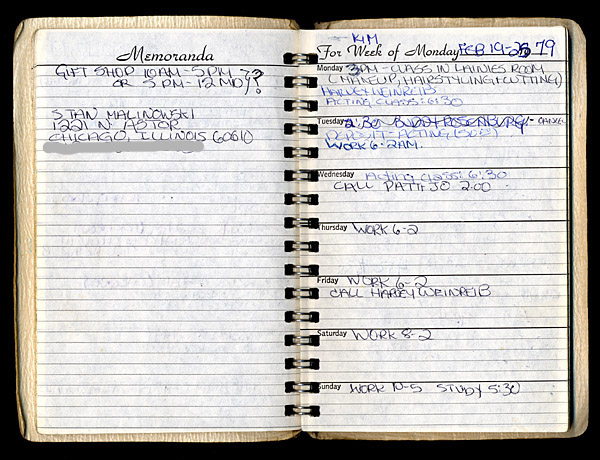 Memoranda
GIFT SHOP 10AM-5PM ?
OR 5PM-12MDY?
STAN MALINOWSKI
1221 N. ASTOR
CHICAGO, ILLINOIS 60610
KIM
For Week of Monday FEB 19-25 79
Monday 3PM-CLASS IN LAINIES ROOM
(MAKEUP, HAIRSTYLING+CUTTING)
HARVEY WEINREIB
ACTING CLASS: 6:30
Tuesday 2:30- CANCEL
DEPOSIT- ACTING
WORK 6-2AM.
Wednesday Acting class: 6:30
CALL PATTI JO 2:00
Thursday WORK 6-2
Friday WORK 6-2
CALL HARVEY WEINREIB
Saturday WORK 8-2
Sunday WORK 10-5 STUDY 5:30